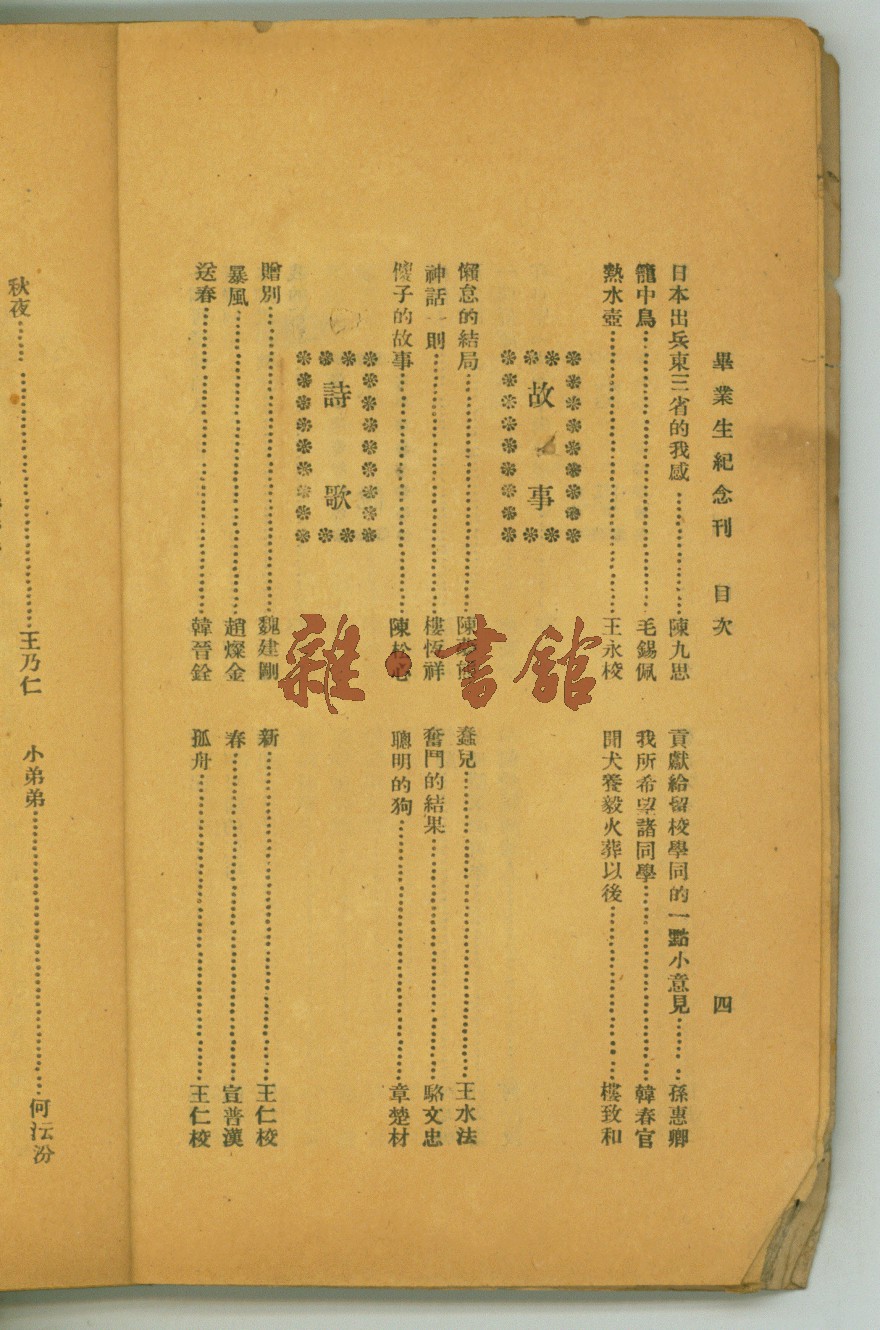 畢業生紀念刊 目次 四
日本出兵東三省的我感……陳九思 貢獻給留校學同的一點小意見……孫惠卿
籠中鳥……毛錫佩 我所希望諸同學……韓春官
熱水壺……王永梭 開犬養毅火葬以後……樓致和
故事
懶怠的結局……陳 蠶兒……王水法
神話一則……樓恆祥 奮鬥的結果……駱文忠
傻子的故事……陳松心 聰明的狗……章楚材
詩歌
贈別……魏建剛 新……王仁梭
暴風……趙燦金 春……宣普漢
送春……韓晉銓 孤舟……王仁梭
秋夜……王乃仁 小弟弟……何沄汾
雜·書館